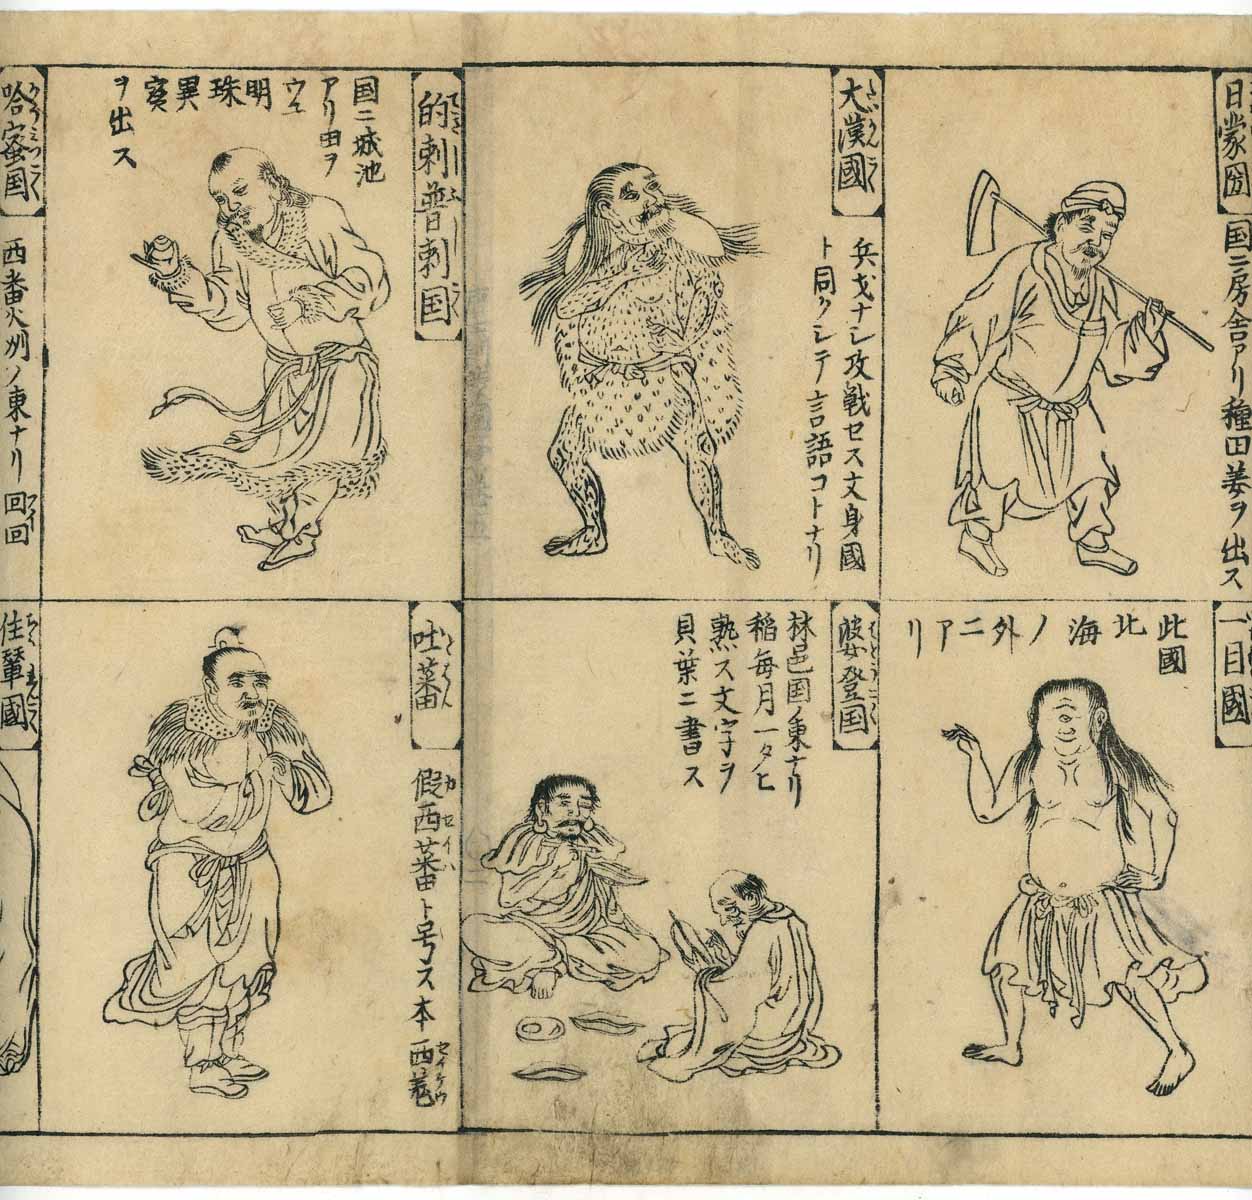 日蒙国
国ニ房舎アリ種田姜ヲ出ス
大漢國
兵戈ナシ攻戦セス文身國
ト同クシテ言語コトナリ
的刺普刺国
国ニ城池
アリ田ヲ
ウエ
明
珠
異
宝
ヲ出ス
哈蜜国
西番火州ノ東ナリ回回
一目國
此國
北
海
ノ
外
ニ
ア
リ
婆登国
林邑国ノ東ナリ
稲毎月一タヒ
熟ス文字ヲ
貝葉ニ書ス
吐蕃
假西蕃ト号ス本西羗
カセイハ
セイケウ
住輦國